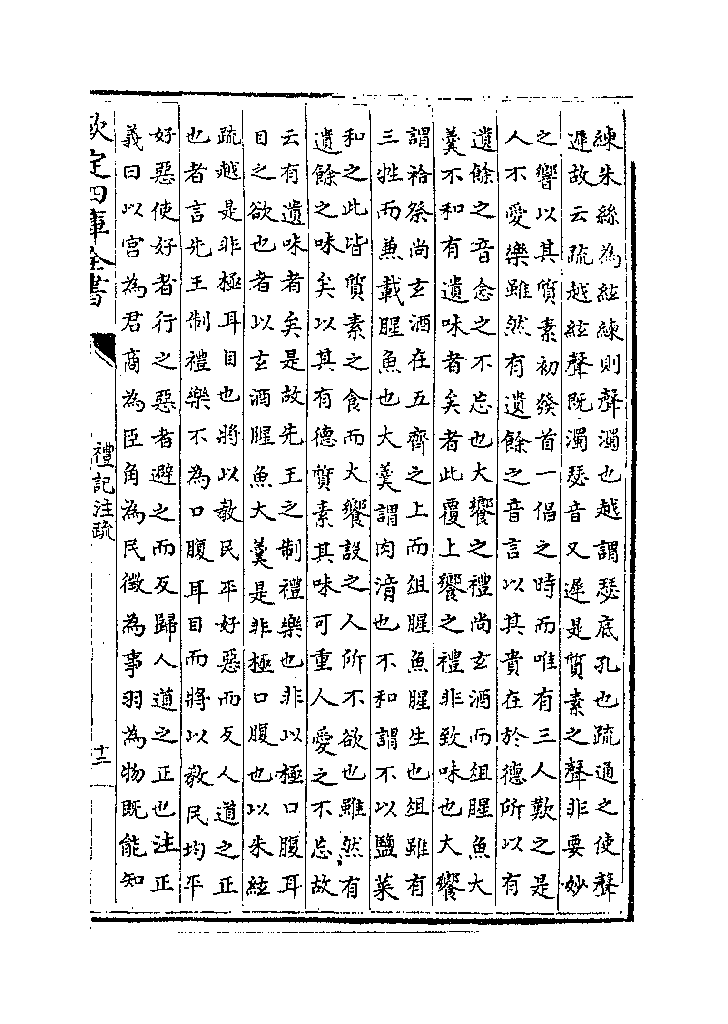 練朱絲為絃練則聲濁也越謂瑟底孔也疏通之使聲
遲故云疏越絃聲既濁瑟音又遲是質素之聲非要妙
之響以其質素初發首一倡之時而唯有三人歎之是
人不愛樂雖然有遺餘之音言以其貴在於德所以有
遺餘之音念之不忘也大饗之禮尚玄酒而俎腥魚大
羹不和有遺味者矣者此覆上饗之禮非致味也大饗
謂祫祭尚玄酒在五齊之上而俎腥魚腥生也俎雖有
三牲而兼載腥魚也大羹謂肉湆也不和謂不以鹽菜
和之此皆質素之食而大饗設之人所不欲也雖然有
遺餘之味矣以其有德質素其味可重人愛之不忘故
云有遺味者矣是故先王之制禮樂也非以極口腹耳
目之欲也者以玄酒腥魚大羹是非極口腹也以朱絃
疏越是非極耳目也將以教民平好惡而反人道之正
也者言先王制禮樂不為口腹耳目而將以教民均平
好惡使好者行之惡者避之而反歸人道之正也注正
義曰以宮為君商為臣角為民徵為事羽為物既能知
欽定四庫全書
禮記注疏
十二